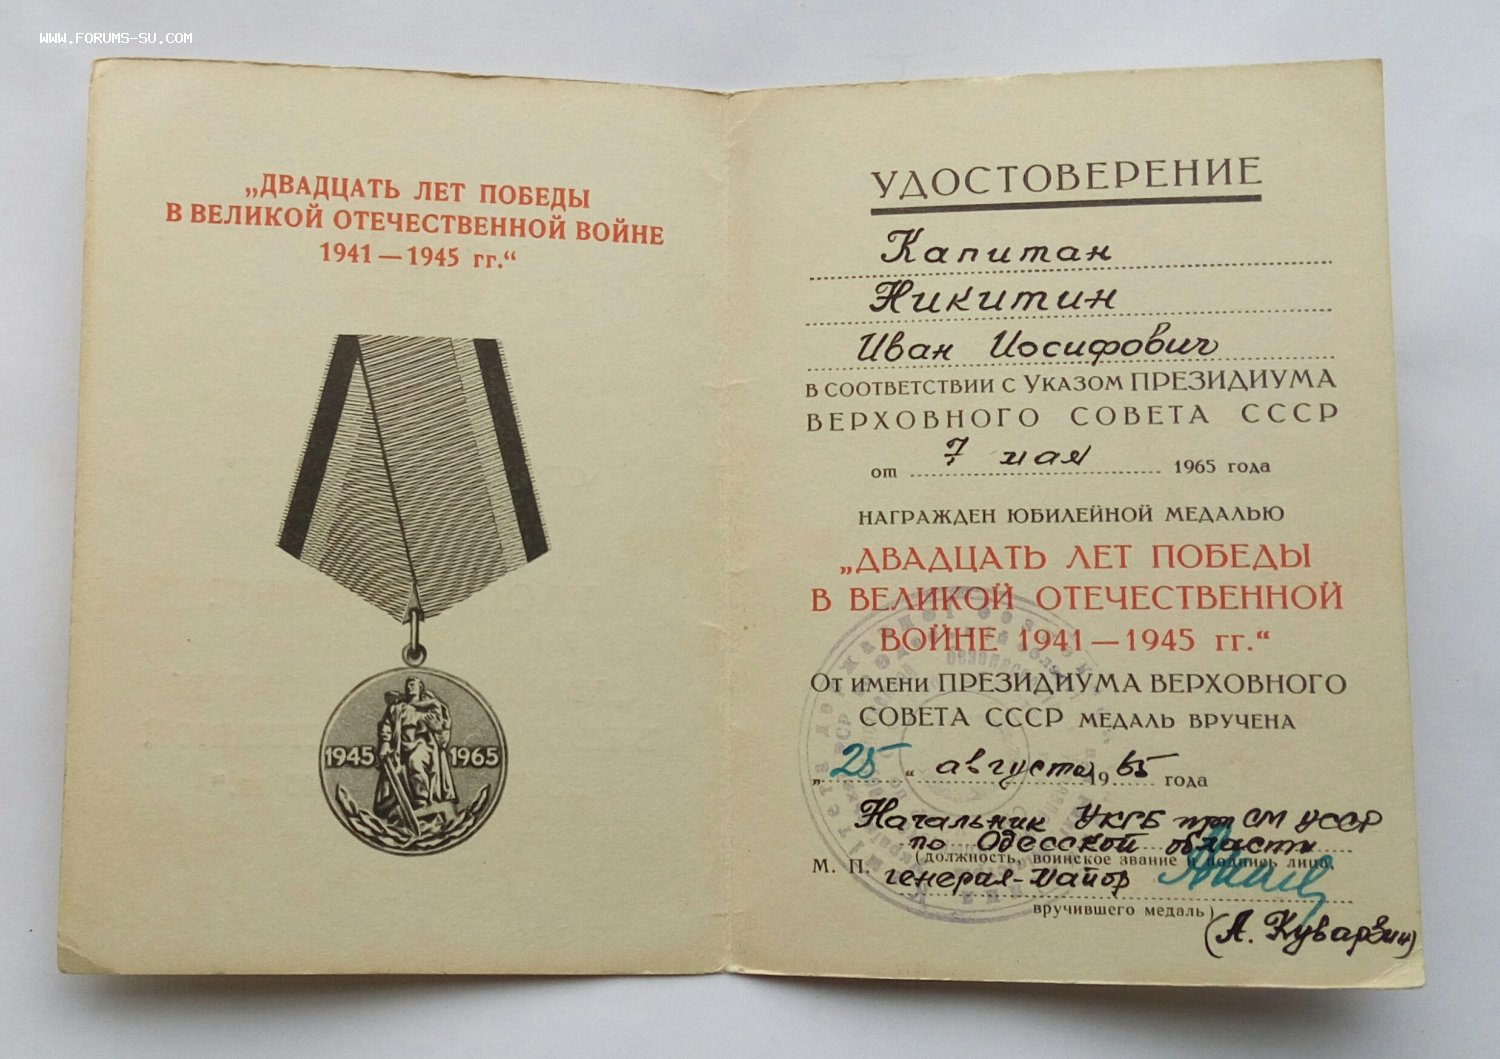 WWW.FORUMS-SU.COM
„ДВАДЦАТЬ ЛЕТ ПОБЕДЫ
В ВЕЛИКОЙ ОТЕЧЕСТВЕННОЙ ВОЙНЕ
1941 — 1945 гг.“
1945 1965
УДОСТОВЕРЕНИЕ
Капитан
Никитин
Иван Иосифович
В СООТВЕТСТВИИ С УКАЗОМ ПРЕЗИДИУМА
ВЕРХОВНОГО СОВЕТА СССР
от 7 мая 1965 года
НАГРАЖДЕН ЮБИЛЕЙНОЙ МЕДАЛЬЮ
„ДВАДЦАТЬ ЛЕТ ПОБЕДЫ
В ВЕЛИКОЙ ОТЕЧЕСТВЕННОЙ
ВОЙНЕ 1941 — 1945 гг.“
От имени ПРЕЗИДИУМА ВЕРХОВНОГО
СОВЕТА СССР МЕДАЛЬ ВРУЧЕНА
„25“ августа 1965 года
Начальник УКГБ при СМ УССР
по Одесской области
(должность, воинское звание и подпись лица,
М. П. генерал-майор
вручившего медаль)
(А. Куварзин)